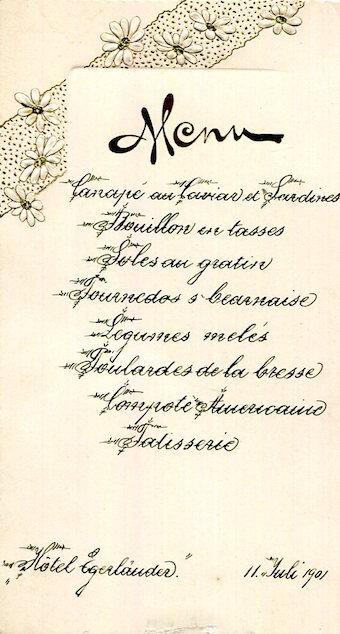 Menu
Canapé au Caviar et Sardines
Bouillon en tasses
Soles au gratin
Tournedos s' bearnaise
Légumes melés
Poulardes de la bresse
Compote Américaine
Patisserie
"Hôtel Egerländer." 11. Juli 1901